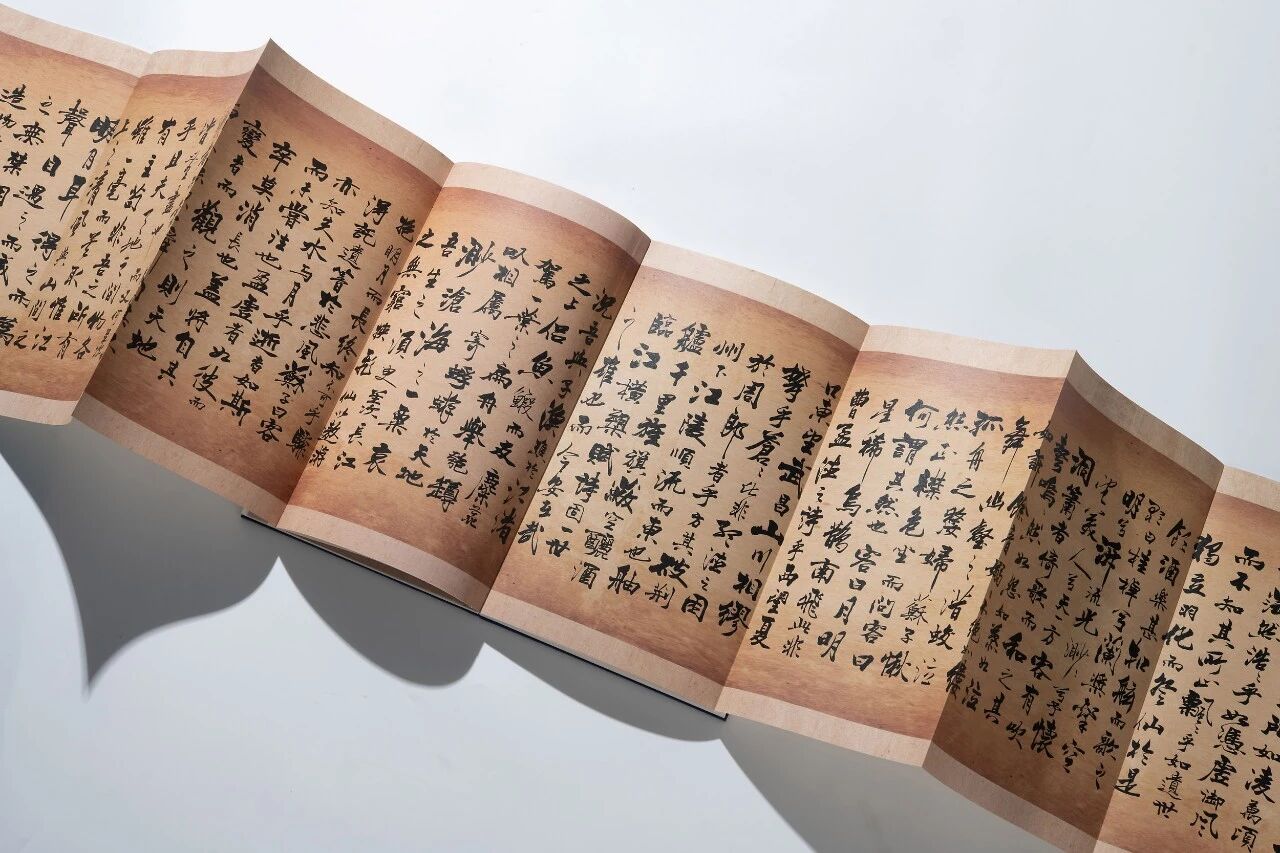 所如凌萬頃
然浩浩乎如憑虛御風
而不知其所止飄飄乎如遺世
獨立羽化而登仙於是
飲酒樂甚扣舷而歌之
歌曰桂棹兮蘭槳擊空
明兮泝流光渺渺兮予懷
望美人兮天一方客有吹
洞簫者倚歌而和之其
聲嗚嗚然如怨如慕如泣
如縷
舞幽壑之潛蛟泣
孤舟之嫠婦蘇子愀
然正襟危坐而問客曰
何謂其然也客曰月明
星稀烏鵲南飛此非
曹孟德之詩乎西望夏
口東望武昌山川相繆
鬱乎蒼蒼此非孟德之困
於周郎者乎方其破荊
州下江陵順流而東也舳
艫千里旌旗蔽空釃酒
臨江橫槊賦詩固一世
之雄也而今安在哉
況吾與子漁樵於江渚
之上侶魚鰕而友麋鹿
駕一葉之扁舟舉匏樽
以相屬寄蜉蝣於天地
渺滄海之一粟哀
吾生之須臾羨長江
之無窮挾飛仙以遨遊
抱明月而長終知不可乎驟
得託遺響於悲風蘇子曰客
亦知夫水與月乎逝者如斯
而未嘗往也盈虛者如彼而
卒莫消長也蓋將自其
變者而觀之則天地
且夫天地之間物各
有主苟非吾之所有
雖一毫而莫取惟江
上之清風與山間之
明月耳得之而
聲目遇之而成
之無禁用
造物